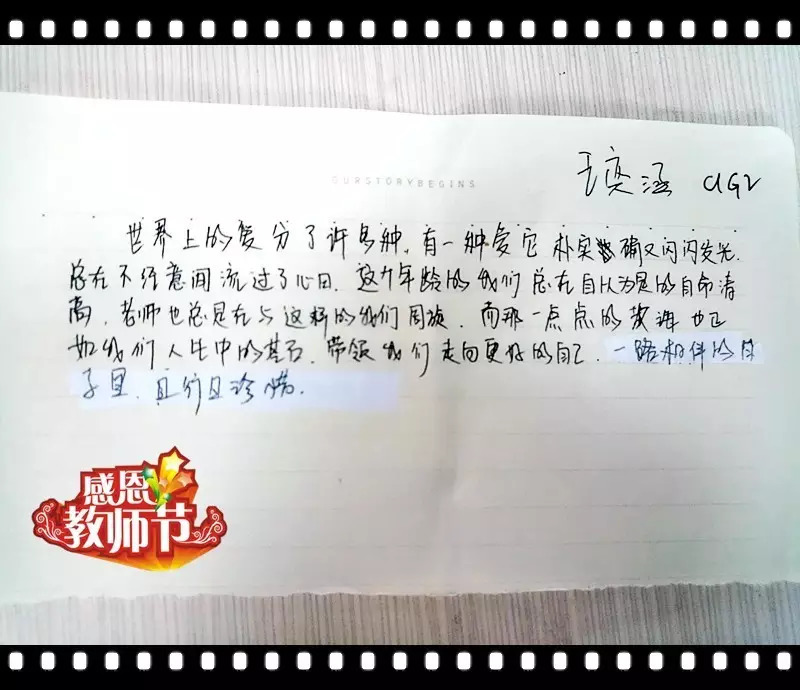 OURSTORYBEGINS
王奕涵 UG2
世界上的爱分了许多种，有一种爱它朴实 确又闪闪发光．
总在不经意间流过了心田．这个年龄的我们总在自以为是的自命清
高，老师也总是在与这样的我们周旋．而那一点点的教诲也正
如我们人生中的基石，带领我们走向更好的自己．一路相伴的日
子里，且行且珍惜．
感恩
教师节